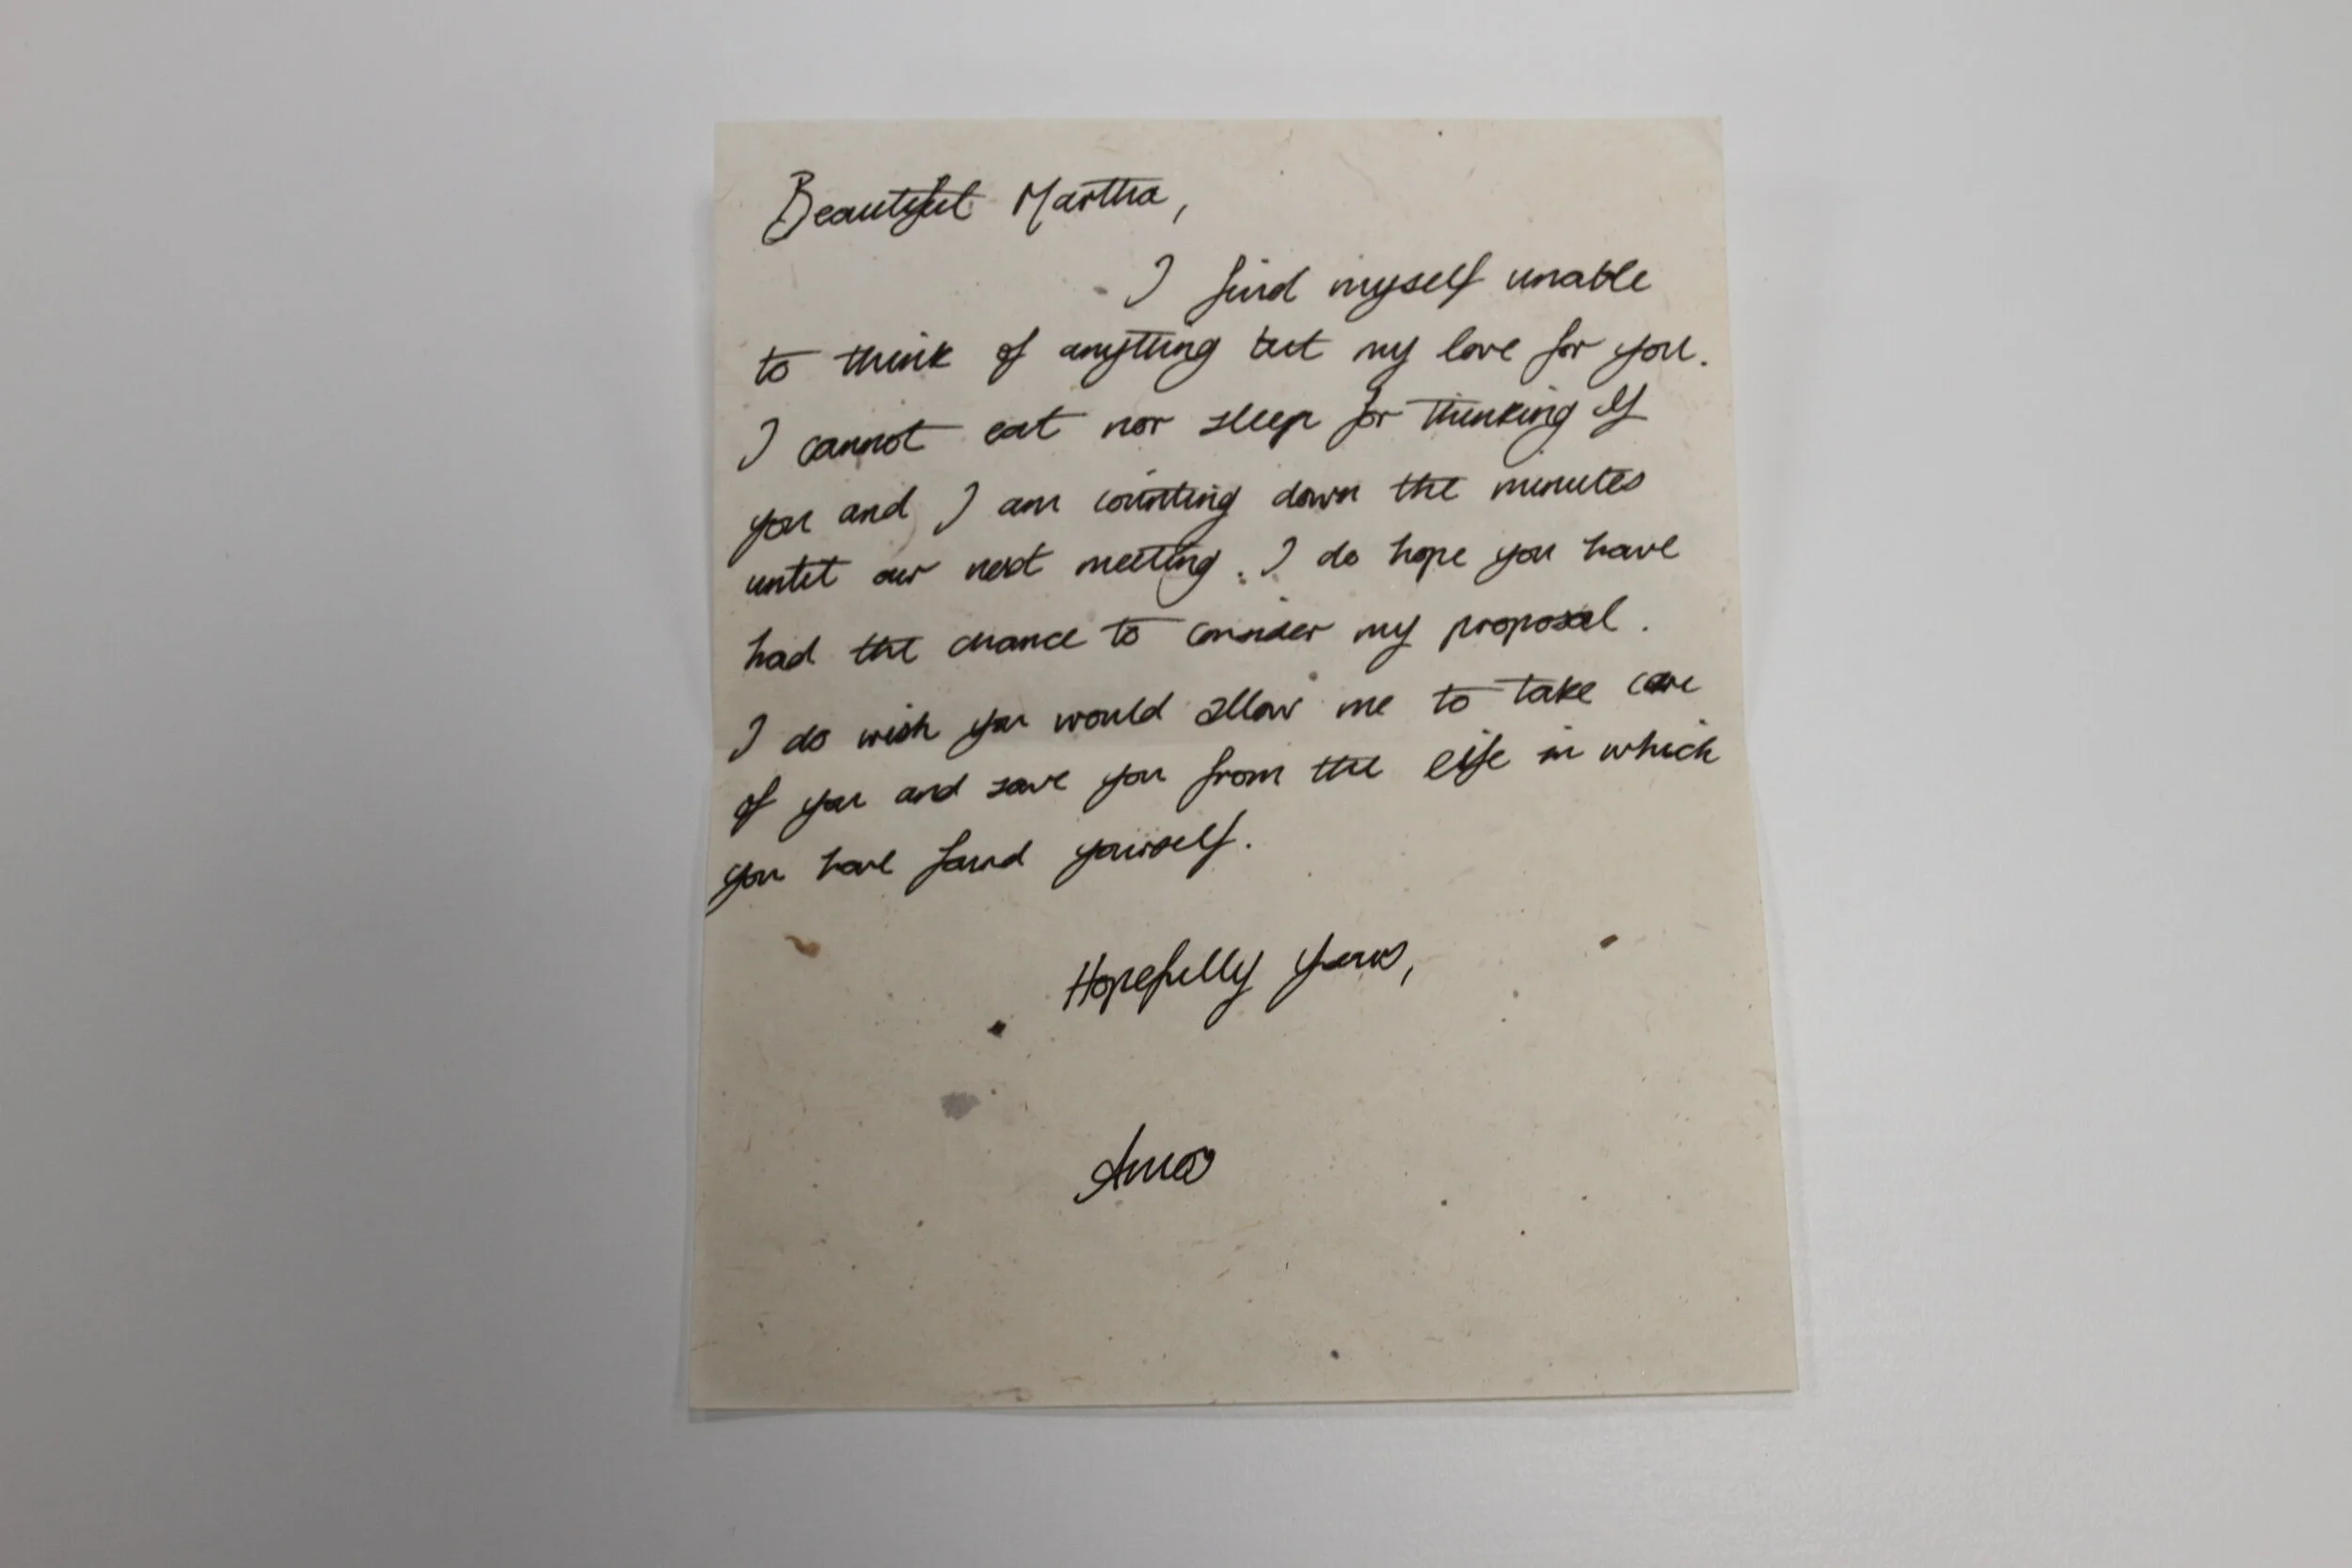 Beautiful Martha,
I find myself unable
to think of anything but my love for you.
I cannot eat nor sleep for thinking of
you and I am counting down the minutes
until our next meeting. I do hope you have
had the chance to consider my proposal.
I do wish you would allow me to take care
of you and save you from the life in which
you have found yourself.
Hopefully yours,
Amos